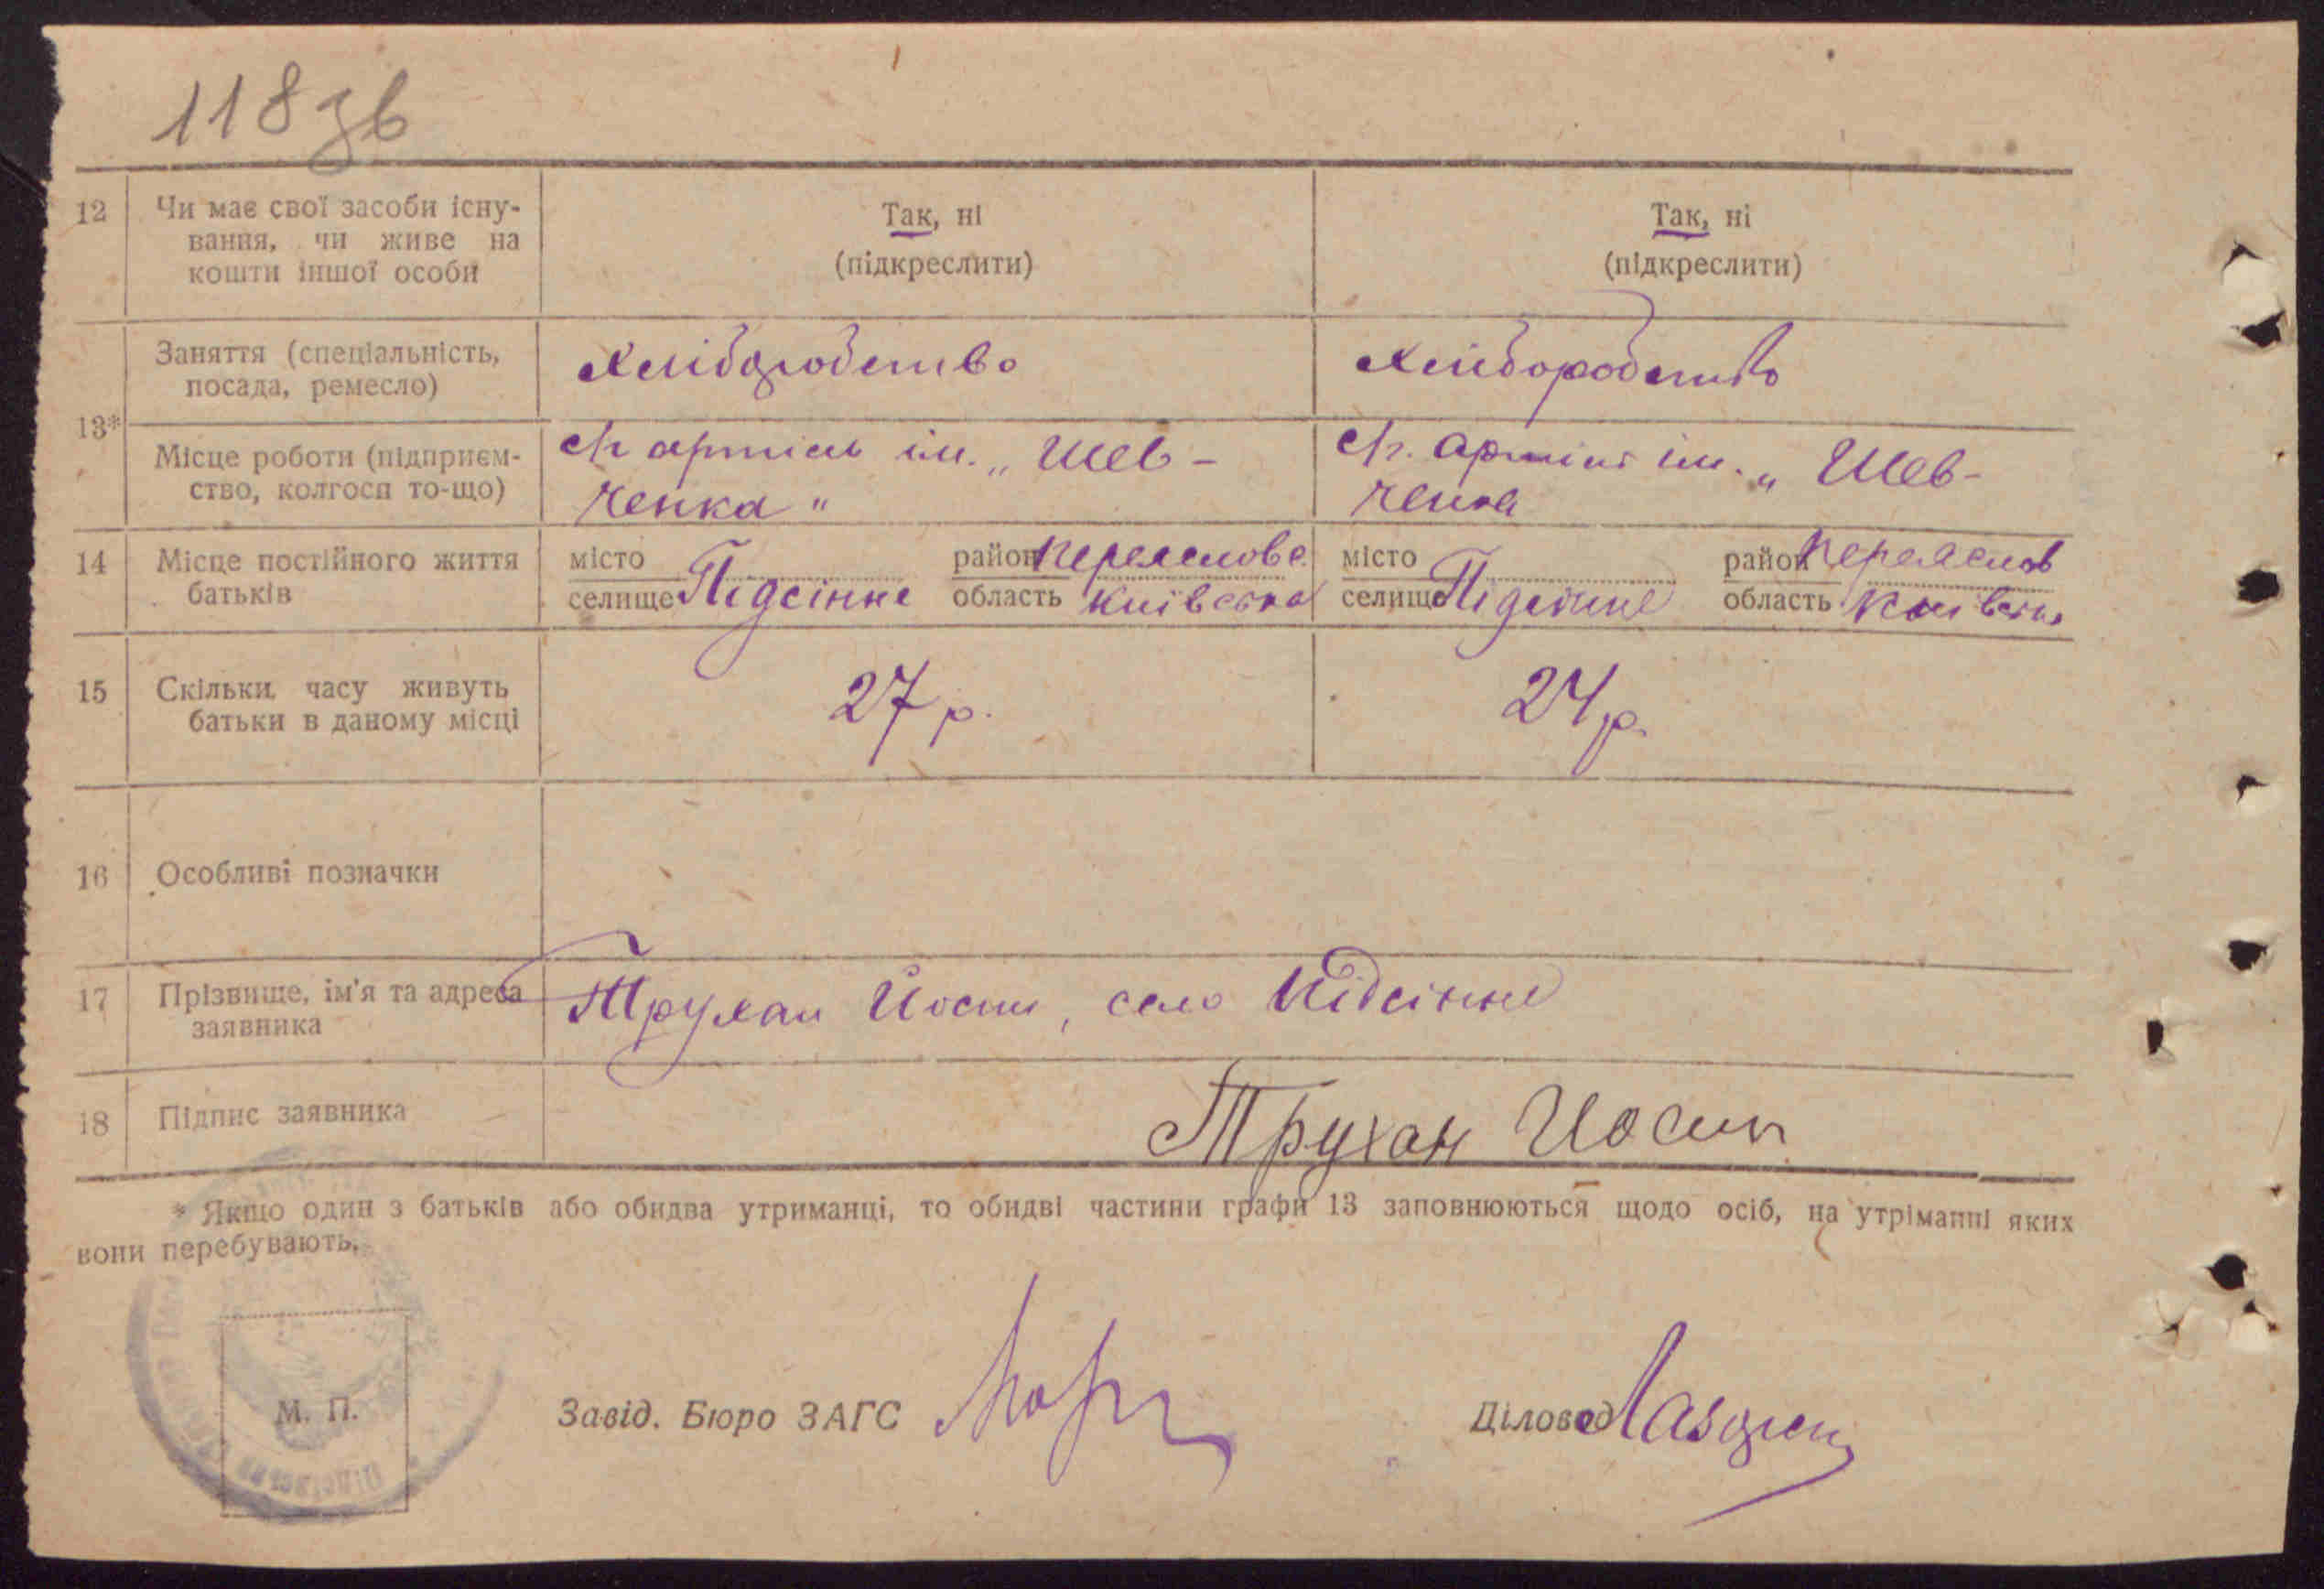 118зв
12 Чи має свої засоби існу- Так, ні Так, ні
вання, чи живе на (підкреслити) (підкреслити)
кошти іншої особи
Заняття (спеціальність, Хліборобство Хліборобство
посада, ремесло)
13*
Місце роботи (підприєм- артіль ім. „Шев- артіль ім. „Шев-
ство, колгосп то-що) ченка" ченка
14 Місце постійного життя місто район Переяслов місто район Переяслов
батьків селище Підсінне область Київська селище Підсінне область Київська
15 Скільки часу живуть 27 р. 24 р.
батьки в даному місці
16 Особливі позначки
17 Прізвище, ім'я та адреса Трухан Йосип, село Підсінне
заявника
18 Підпис заявника Трухан Иосип
* Якщо один з батьків або обидва утриманці, то обидві частини графи 13 заповнюються щодо осіб, на утріманні яких
вони перебувають.
М. П. Завід. Бюро ЗАГС Діловод